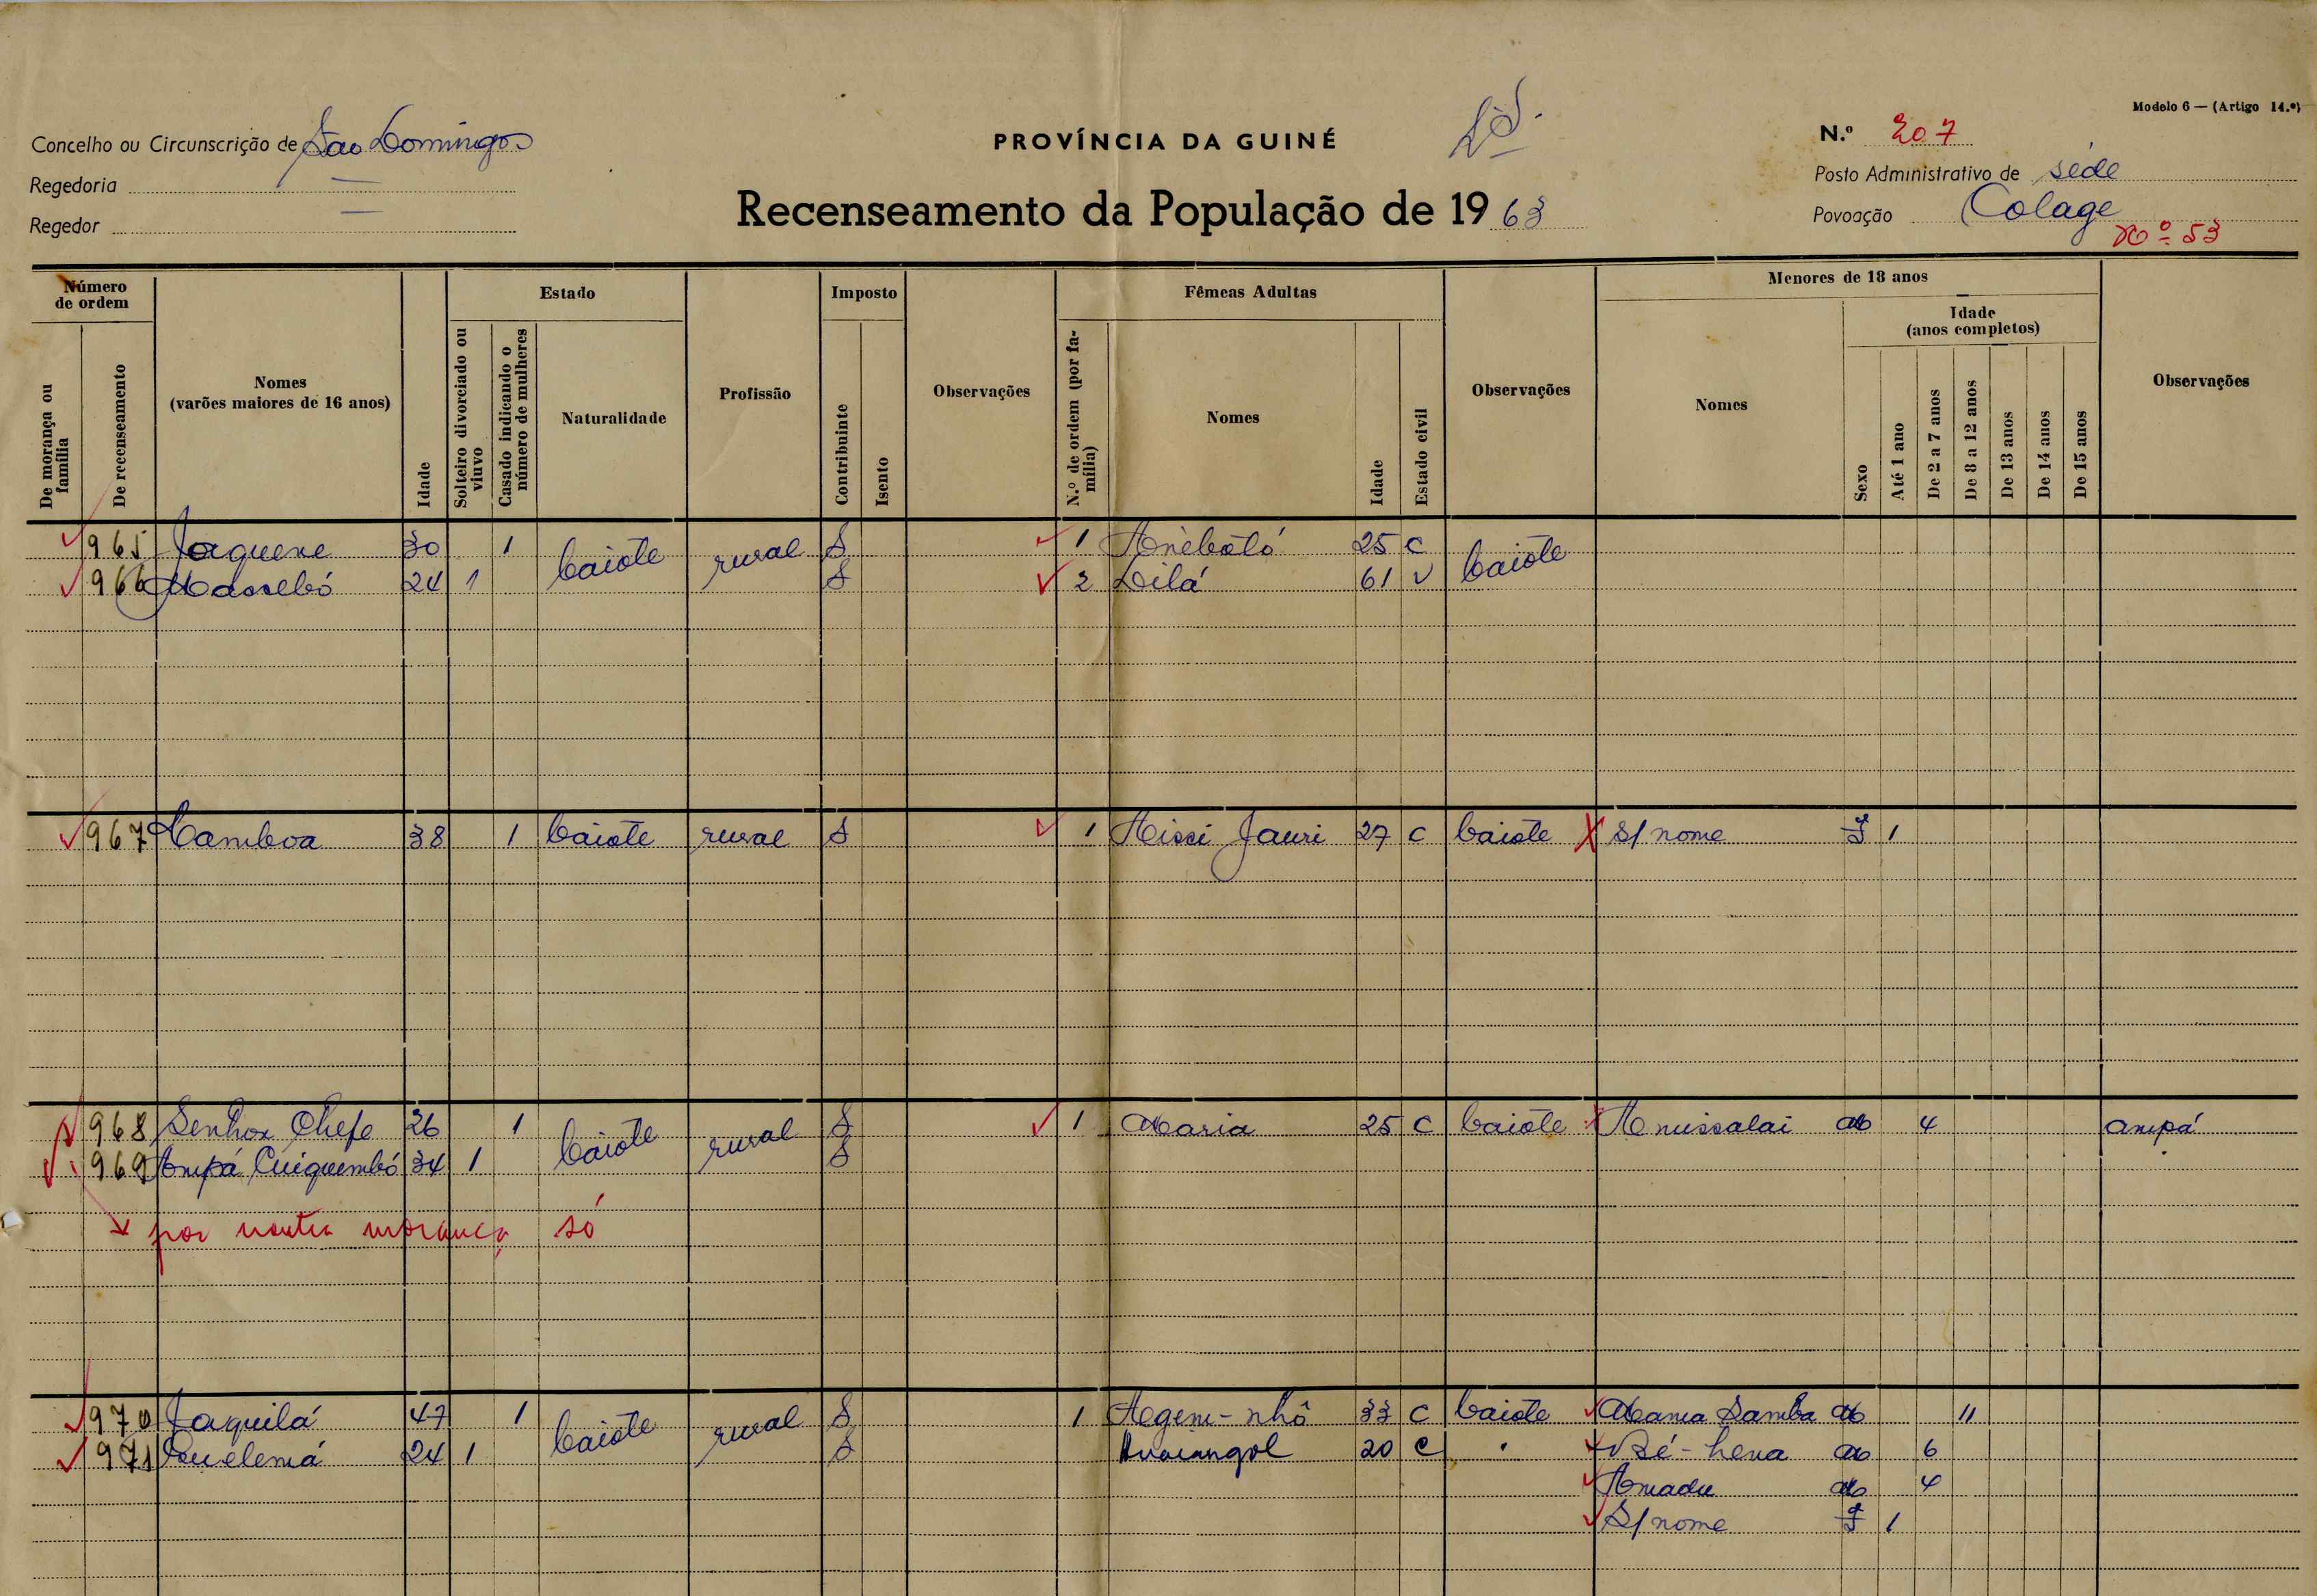 Modelo 6 — (Artigo 14.º)
Concelho ou Circunscrição de São Domingos
PROVÍNCIA DA GUINÉ
N.º 207
Regedoria —
Posto Administrativo de séde
Regedor —
Recenseamento da População de 1963
Povoação Colage
Nº 53
Número de ordem
De morança ou família
De recenseamento
Nomes
(varões maiores de 16 anos)
Idade
Estado
Solteiro divorciado ou viuvo
Casado indicando o número de mulheres
Naturalidade
Profissão
Imposto
Contribuinte
Isento
Observações
Fêmeas Adultas
N.º de ordem (por família)
Nomes
Idade
Estado civil
Observações
Menores de 18 anos
Nomes
Sexo
Idade
(anos completos)
Até 1 ano
De 2 a 7 anos
De 8 a 12 anos
De 13 anos
De 14 anos
De 15 anos
Observações
965 Jaquene 30 1 baiote rural S 1 Anebotó 25 C baiote
966 Massebó 24 1 S 2 Dilá 61 V
967 Camboa 38 1 baiote rural S 1 Aissi Jauri 27 C baiote S/nome F 1
968 Senhor Chefe 26 1 baiote rural S 1 Maria 25 C baiote Anussalai M 4 ampá
969 Ampá Cuiquembó 34 1 S
por noutra morança só
970 Jaquilá 47 1 baiote rural S 1 Agem-nhô 33 C baiote Mama Samba M 11
971 Quelemá 24 1 S 20 C " M 6
Amadu M 4
S/nome F 1